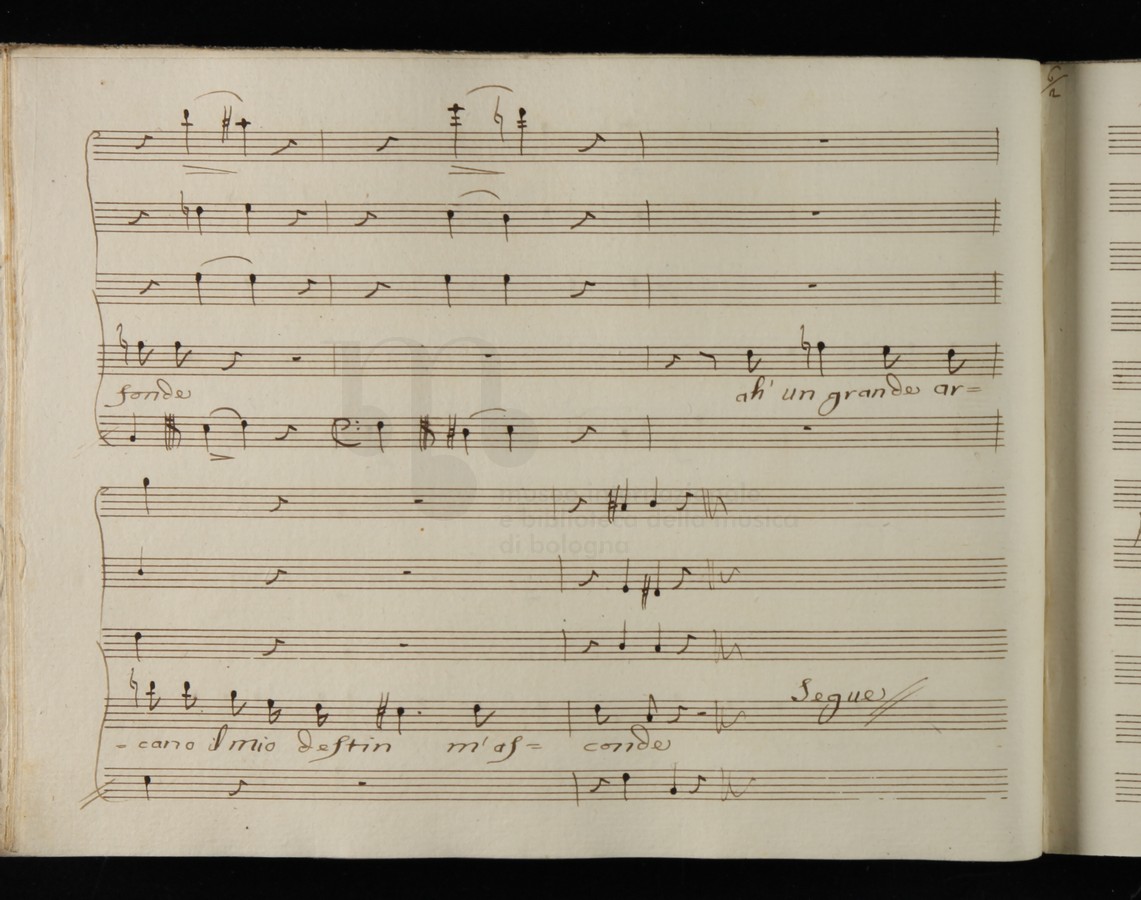 6/2
fonde ah' un grande ar=
museo internazionale
e biblioteca della musica
di bologna
Segue
-cano il mio destin m'as= conde